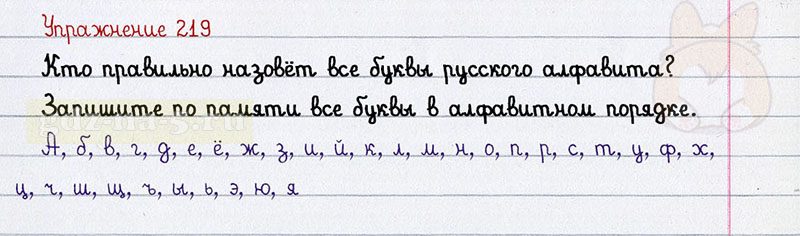 Упражнение 219
Кто правильно назовёт все буквы русского алфавита?
Запишите по памяти все буквы в алфавитном порядке.
А, б, в, г, д, е, ё, ж, з, и, й, к, л, м, н, о, п, р, с, т, у, ф, х,
ц, ч, ш, щ, ъ, ы, ь, э, ю, я